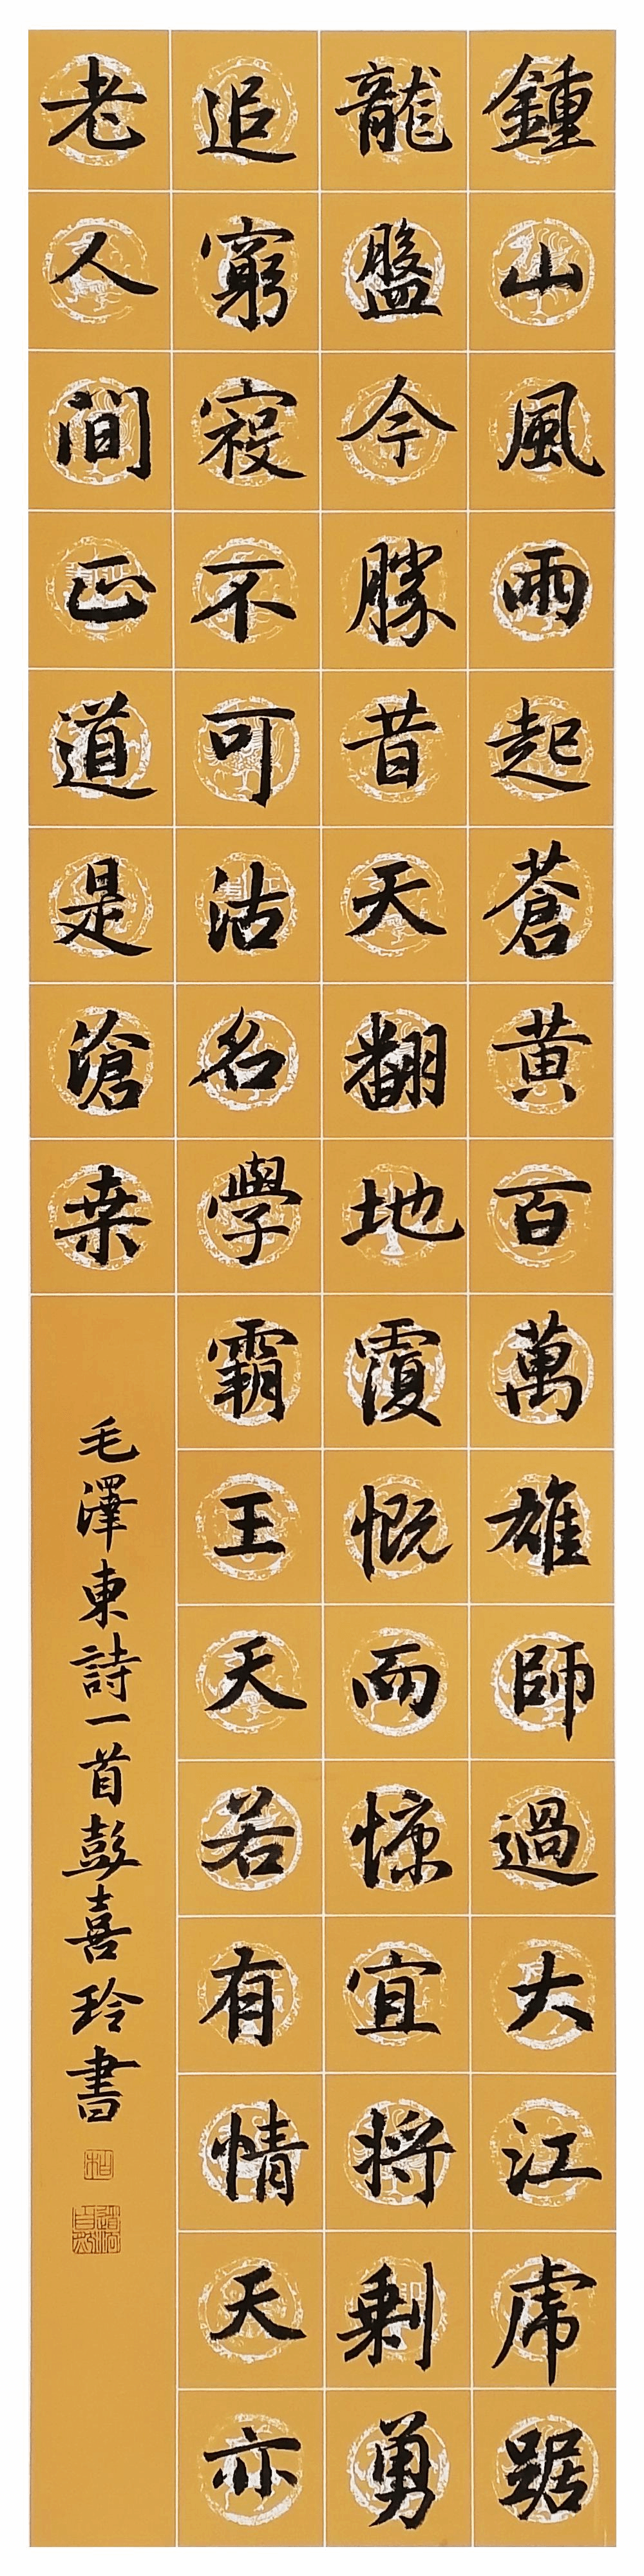 鍾山風雨起蒼黄百萬雄師過大江虎踞
龍盤今勝昔天翻地覆慨而慷宜將剩勇
追窮寇不可沽名學霸王天若有情天亦
老人間正道是滄桒
毛澤東詩一首彭喜玲書